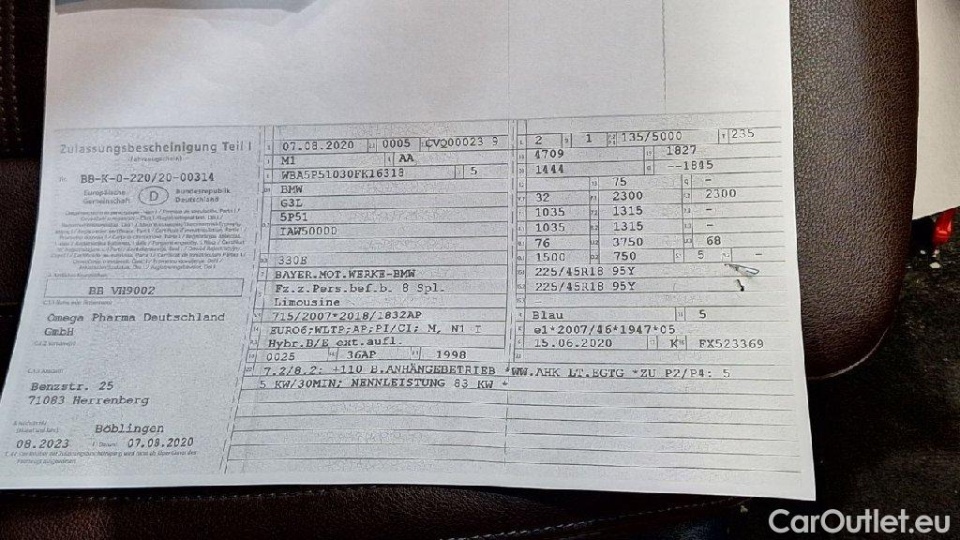 Zulassungsbescheinigung Teil I
(Fahrzeugschein)
Nr. BB-K-0-220/20-00314
Europäische Gemeinschaft D Bundesrepublik Deutschland
BB VH9002
Omega Pharma Deutschland
GmbH
Benzstr. 25
71083 Herrenberg
Böblingen
08.2023 07.08.2020
07.08.2020 0005 CVQ00023 9
M1 AA
WBA5P51030FK16318 5
BMW
G3L
5P51
IAW5000D
330E
BAYER.MOT.WERKE-BMW
Fz.z.Pers.bef.b. 8 Spl.
Limousine
715/2007*2018/1832AP
EURO6;WLTP;AP;PI/CI; M, N1 I
Hybr.B/E ext.aufl.
0025 36AP 1998
2 1 135/5000 235
4709 1827
1444 --1845
75 -
32 2300 2300
1035 1315 -
1035 1315 -
76 3750 68
1500 750 5 -
225/45R18 95Y
225/45R18 95Y
Blau 5
e1*2007/46*1947*05
15.06.2020 K FX523369
7.2/8.2: +110 B.ANHÄNGEBETRIEB *WW.AHK LT.EGTG *ZU P2/P4: 5
5 KW/30MIN; NENNLEISTUNG 83 KW *
CarOutlet.eu